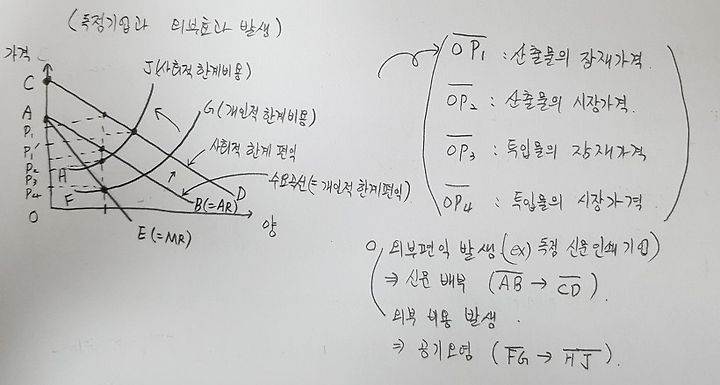 (독점기업과 외부효과 발생)
가격
C
A
P₁
P₁'
P₂
P₃
P₄
O
J(사회적 한계비용)
G(개인적 한계비용)
사회적 한계 편익
수요곡선(=개인적 한계편익)
H
F
D
B(=AR)
양
E(=MR)
OP₁ : 산출물의 잠재가격
OP₂ : 산출물의 시장가격
OP₃ : 투입물의 잠재가격
OP₄ : 투입물의 시장가격
외부편익 발생 (ex) 독점 신문인쇄기업)
⇒ 신문 배부 (AB → CD).
외부 비용 발생.
⇒ 공기오염 (FG → HJ).